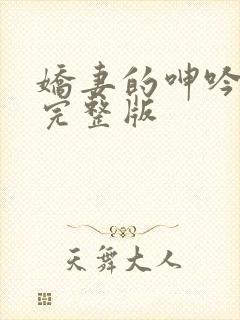 嬌妻的呻吟
完整版
天舞大人